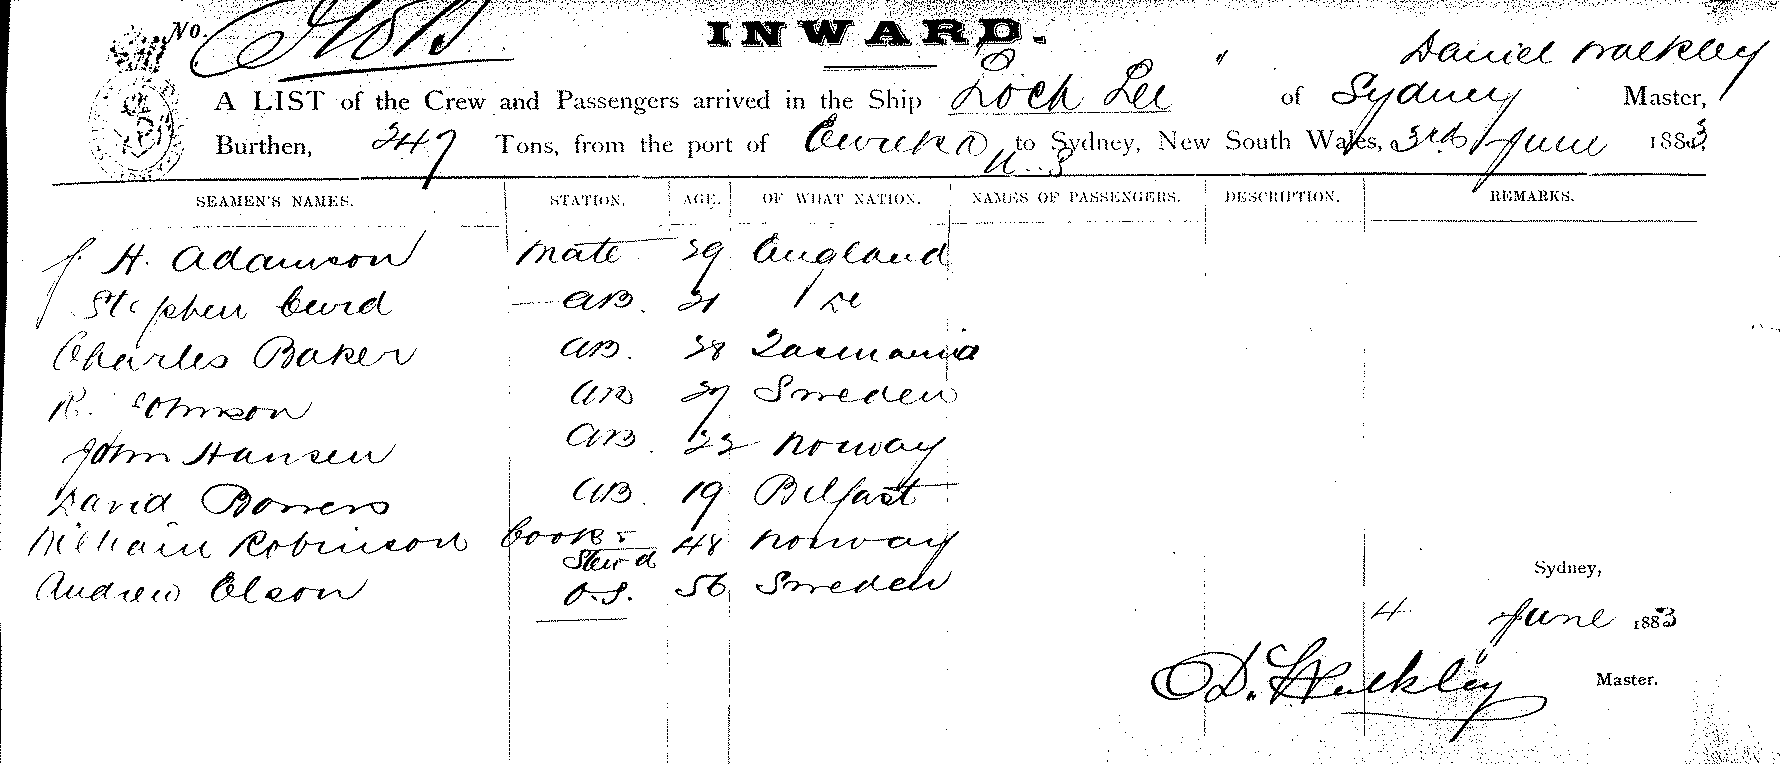 No.
INWARD.
Daniel Walkley
A LIST of the Crew and Passengers arrived in the Ship Loch Lee of Sydney Master,
Burthen, 247 Tons, from the port of to Sydney, New South Wales, 3rd June 1883
SEAMEN'S NAMES. STATION. AGE. OF WHAT NATION. NAMES OF PASSENGERS. DESCRIPTION. REMARKS.
J. H. Adamson Mate 39 England
Stephen AB. 21 Do
Charles Baker AB. 38 Tasmania
R. Johnson AB 27 Sweden
John Hansen AB. 22 Norway
David Bowers AB. 19 Belfast
William Robinson Cook & 48 Norway
Stew'd
Andrew Olson O.S. 56 Sweden
Sydney,
4 June 1883
D. Walkley Master.